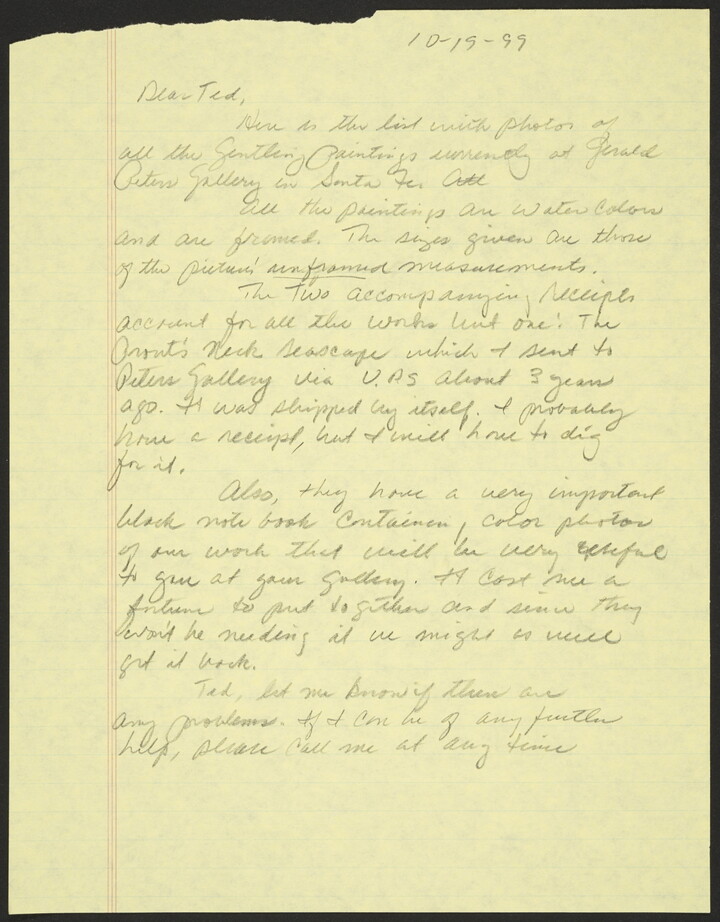 10-19-99
Dear Ted,
Here is the list with photos of
all the Gentling Paintings currently at Gerald
Peters Gallery in Santa Fe. All
All the paintings are Water Colors
and are framed. The sizes given are those
of the picture's unframed measurements.
The Two accompanying receipts
account for all the works but one: The
Prout's Neck Seascape which I sent to
Peters Gallery via U.P.S about 3 years
ago. It was shipped by itself. I probably
have a receipt, but I will have to dig
for it.
Also, they have a very important
black note book containing color photos
of our work that will be very useful
to you at your gallery. It cost me a
fortune to put together and since they
won't be needing it we might as well
get it back.
Ted, let me know if there are
any problems. If I can be of any further
help, please call me at any time